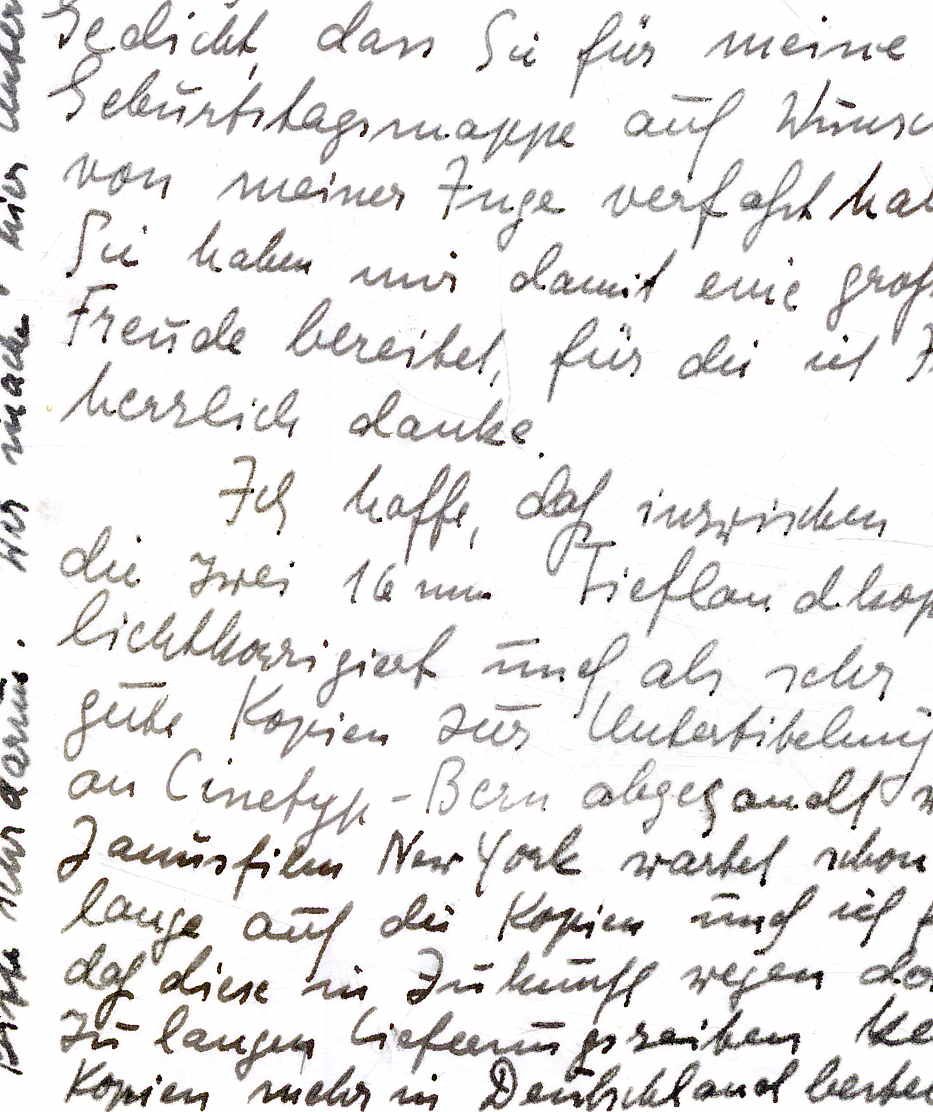 Gedicht, dass Sie für meine
Geburtstagsmappe auf Wunsc
von meiner Inge verfaßt hab
Sie haben mir damit eine groß
Freude bereitet, für die ich I
herzlich danke.
Ich hoffe, daß inzwischen
die zwei 16 mm Tieflandkop
lichtkorrigiert und als sehr
gute Kopien zur Untertitelung
an Cinetyp-Bern abgesandt w
Janusfilm New York wartet schon
lange auf die Kopien und ich
daß diese in Zukunft wegen da
zu langen Lieferungszeiten ke
Kopien mehr in Deutschland bestel
Bitte sehr darum. Wir machen hier Unter